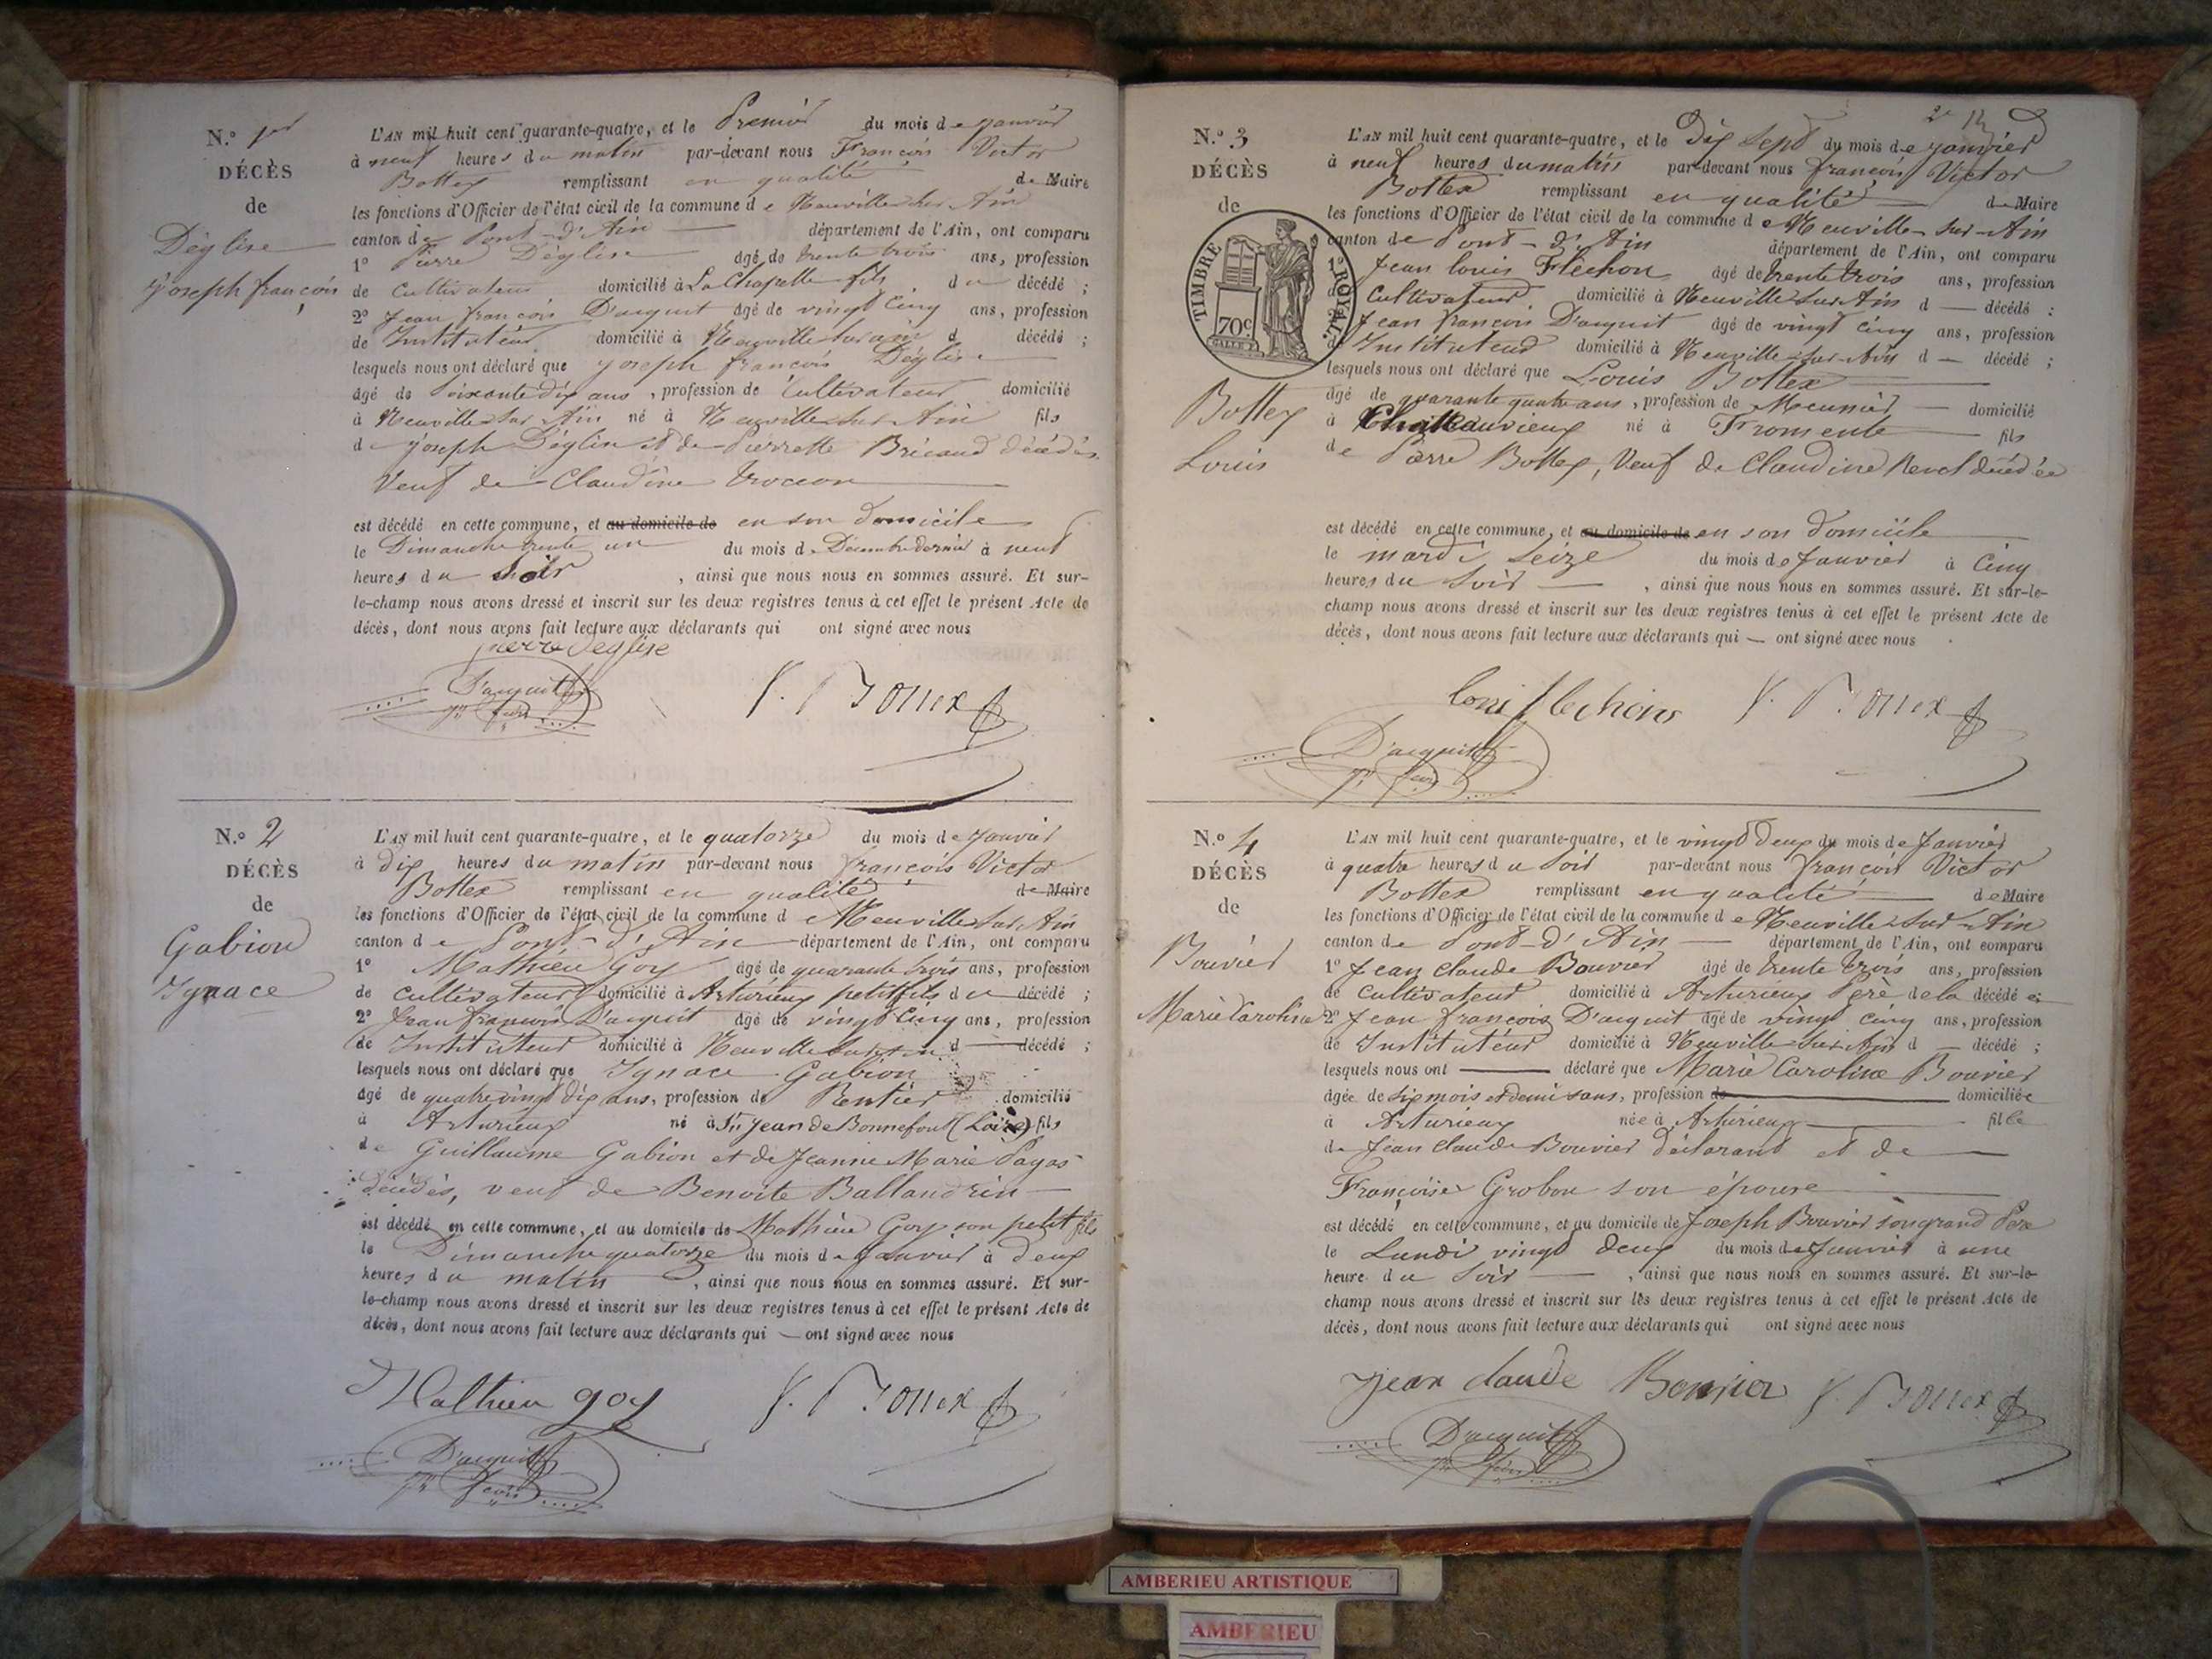 N.º 1er
DÉCÈS
de
Déglise
Joseph françois
L'AN mil huit cent quarante-quatre, et le Premier du mois de janvier
à neuf heures du matin par-devant nous François Victor
Bottex remplissant en qualité de Maire
les fonctions d'Officier de l'état civil de la commune de Neuville sur Ain
canton de Pont-d'Ain département de l'Ain, ont comparu
1º Pierre Déglise âgé de trente trois ans, profession
de Cultivateur domicilié à La Chapelle fils du décédé ;
2º Jean françois D'acquit âgé de vingt cinq ans, profession
de Instituteur domicilié à Neuville sur ain d décédé ;
lesquels nous ont déclaré que Joseph françois Déglise
âgé de soixante dix ans, profession de Cultivateur domicilié
à Neuville sur Ain né à Neuville sur Ain fils
de Joseph Déglise et de Pierrette Bricaud décédés
Veuf de Claudine
est décédé en cette commune, et au domicile de en son Domicile
le Dimanche trente un du mois de Décembre dernier à neuf
heures du soir, ainsi que nous nous en sommes assuré. Et sur-
le-champ nous avons dressé et inscrit sur les deux registres tenus à cet effet le présent Acte de
décès, dont nous avons fait lecture aux déclarants qui ont signé avec nous
pierre deglise
D'acquit
V. Bottex
N.º 2
DÉCÈS
de
Gabion
Ignace
L'AN mil huit cent quarante-quatre, et le quatorze du mois de Janvier
à dix heures du matin par-devant nous françois Victor
Bottex remplissant en qualité de Maire
les fonctions d'Officier de l'état civil de la commune de Neuville sur Ain
canton de Pont-d'Ain département de l'Ain, ont comparu
1º Mathieu Goy âgé de quarante trois ans, profession
de cultivateur domicilié à Arturieux petit fils du décédé ;
2º Jean françois D'acquit âgé de vingt cinq ans, profession
de Instituteur domicilié à Neuville sur ain d décédé ;
lesquels nous ont déclaré que Ignace Gabion
âgé de quatre vingt dix ans, profession de Rentier domicilié
à Arturieux né à St Jean de Bonnefont (Loire) fils
de Guillaume Gabion et de Jeanne Marie Payas
décédés, veuf de Benoite Ballandrin
est décédé en cette commune, et au domicile de Mathieu Goy son petit fils
le Dimanche quatorze du mois de Janvier à deux
heures du matin, ainsi que nous nous en sommes assuré. Et sur-
le-champ nous avons dressé et inscrit sur les deux registres tenus à cet effet le présent Acte de
décès, dont nous avons fait lecture aux déclarants qui — ont signé avec nous
Mathieu goy
V. Bottex
D'acquit
N.º 3
DÉCÈS
de
TIMBRE ROYAL.
70c
Bottex
Louis
L'AN mil huit cent quarante-quatre, et le Dix Sept du mois de janvier
à neuf heures du matin par-devant nous françois Victor
Bottex remplissant en qualité de Maire
les fonctions d'Officier de l'état civil de la commune de Neuville-sur-Ain
canton de Pont-d'Ain département de l'Ain, ont comparu
1º Jean louis Fléchon âgé de trente trois ans, profession
de Cultivateur domicilié à Neuville sur Ain d — décédé ;
Jean françois D'acquit âgé de vingt cinq ans, profession
d'Instituteur domicilié à Neuville-sur-Ain d — décédé ;
lesquels nous ont déclaré que Louis Bottex
âgé de quarante quatre ans, profession de Meunier — domicilié
à Chateauvieux né à Fromente fils
de Pierre Bottex, Veuf de Claudine Revel décédée
est décédé en cette commune, et au domicile de en son Domicile
le mardi Seize du mois de Janvier à Cinq
heures du Soir —, ainsi que nous nous en sommes assuré. Et sur-le-
champ nous avons dressé et inscrit sur les deux registres tenus à cet effet le présent Acte de
décès, dont nous avons fait lecture aux déclarants qui — ont signé avec nous
V. Bottex
D'acquit
N.º 4
DÉCÈS
de
Bouvier
Marie Caroline
L'AN mil huit cent quarante-quatre, et le vingt Deux du mois de Janvier
à quatre heures du Soir par-devant nous françois Victor
Bottex remplissant en qualité de Maire
les fonctions d'Officier de l'état civil de la commune de Neuville-sur-Ain
canton de Pont-d'Ain — département de l'Ain, ont comparu
1º Jean Claude Bouvier âgé de trente trois ans, profession
de Cultivateur domicilié à Arturieux Père de la décédée ;
2º Jean françois D'acquit âgé de vingt cinq ans, profession
de Instituteur domicilié à Neuville-sur-Ain d — décédé ;
lesquels nous ont — déclaré que Marie Caroline Bouvier
âgée de six mois et demi ans, profession de — domiciliée
à Arturieux née à Arturieux — fille
de Jean Claude Bouvier déclarant et de
Françoise Grobon son épouse
est décédé en cette commune, et au domicile de Joseph Bouvier son grand Père
le Lundi vingt deux du mois de Janvier à une
heure du Soir —, ainsi que nous nous en sommes assuré. Et sur-le-
champ nous avons dressé et inscrit sur les deux registres tenus à cet effet le présent Acte de
décès, dont nous avons fait lecture aux déclarants qui ont signé avec nous
Jean claude Bouvier V. Bottex
D'acquit
AMBERIEU ARTISTIQUE
AMBERIEU